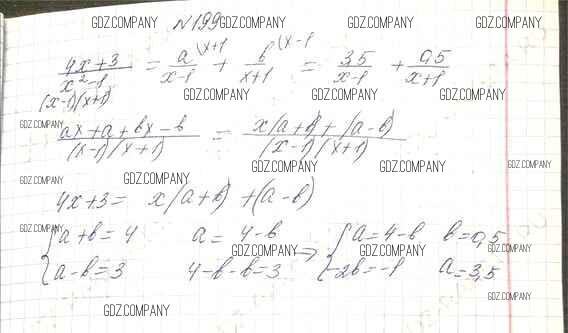 GDZ.COMPANY GDZ.COMPANY GDZ.COMPANY GDZ.COMPANY
№199
(4x+3)/(x²-1) = a/(x-1) (x+1 + b/(x+1) (x-1 = 3,5/(x-1) + 0,5/(x+1)
(x-1)(x+1)
GDZ.COMPANY GDZ.COMPANY
GDZ.COMPANY
(ax+a+bx-b)/((x-1)(x+1)) = (x(a+b)+(a-b))/((x-1)(x+1))
GDZ.COMPANY GDZ.COMPANY GDZ.COMPANY
GDZ.COMPANY
4x+3 = x(a+b)+(a-b)
GDZ.COMPANY
{ a+b=4 a=4-b ⇒ { a=4-b b=0,5
GDZ.COMPANY GDZ.COMPANY GDZ.COMPANY
{ a-b=3 4-b-b=3 { -2b=-1 a=3,5
GDZ.COMPANY GDZ.COMPANY